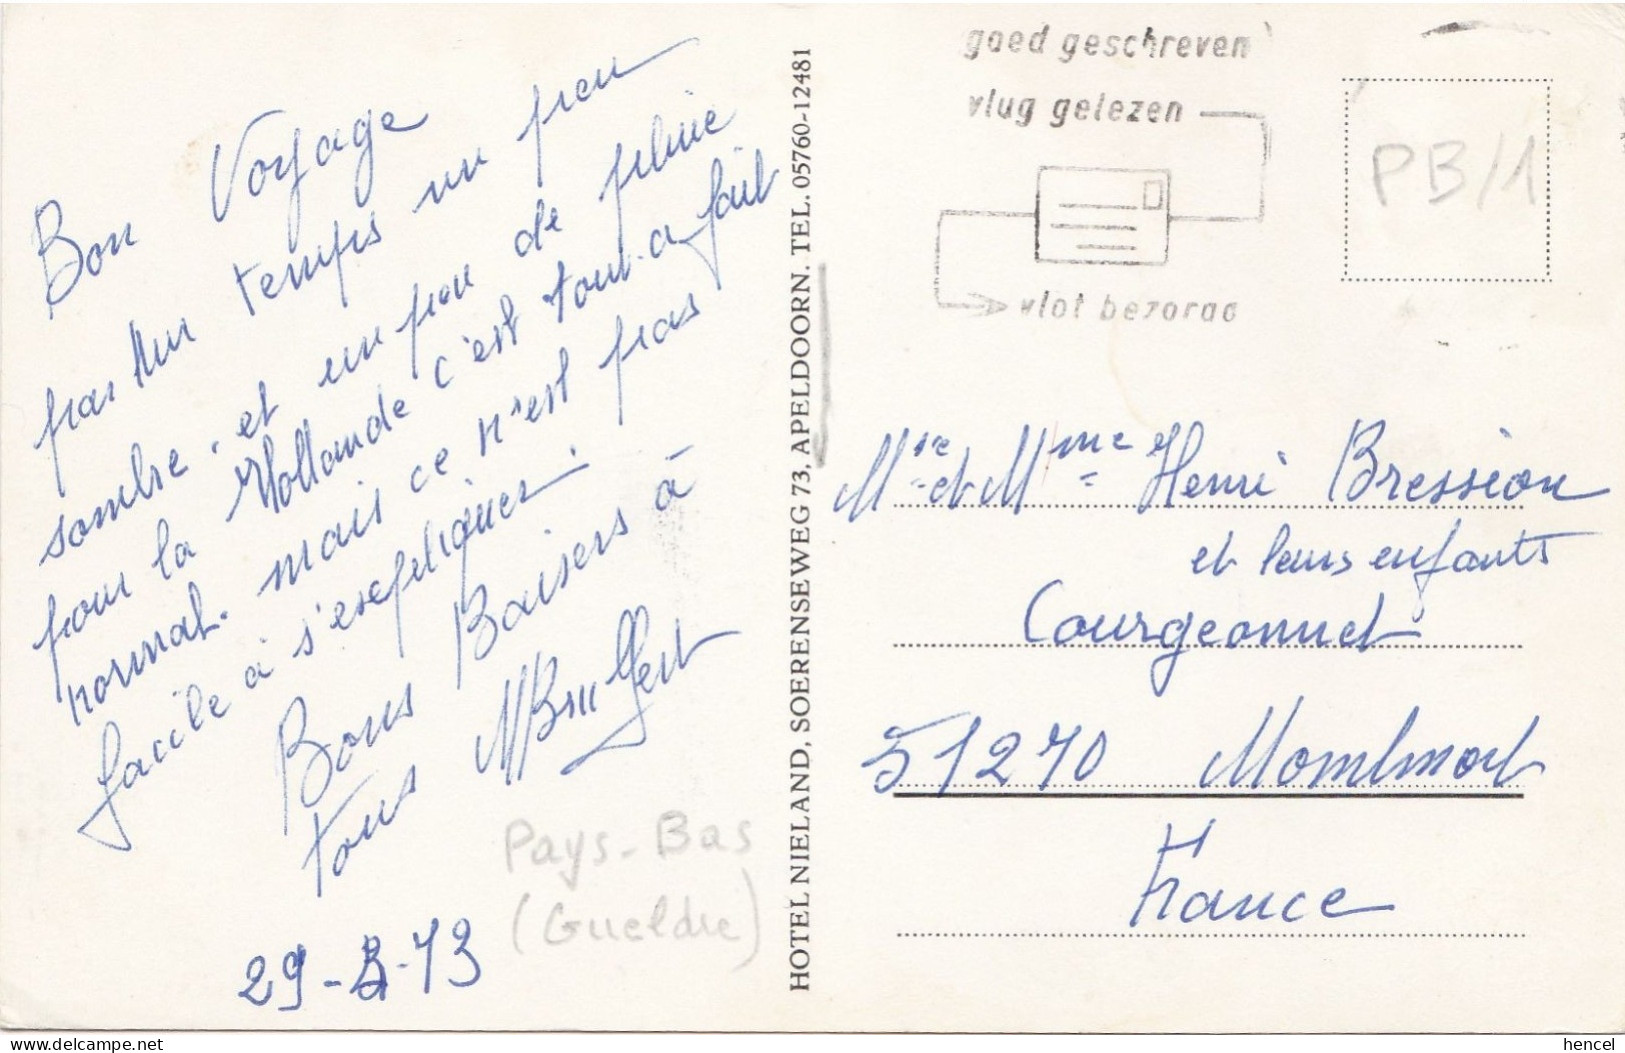 Bon Voyage
par un temps un peu
sombre. et un peu de pluie
pour la Hollande c'est tout-a fait
normal. mais ce n'est pas
facile à s'expliquer.
Bons Baisers à
tous
29-8-73
Pays-Bas
(Gueldre)
HOTEL NIELAND, SOERENSEWEG 73, APELDOORN. TEL. 05760-12481
goed geschreven
vlug gelezen
vlot bezorgd
PB/1
Mr et Mme Henri Bression
et leurs enfants
Courgeonnet
51270 Montmort
France
hencel